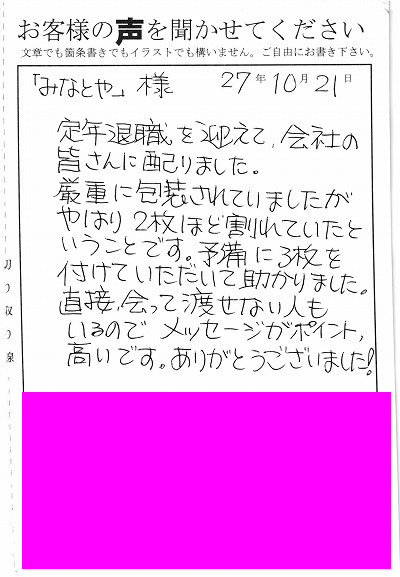 お客様の声を聞かせてください
文章でも箇条書きでもイラストでも構いません。ご自由にお書き下さい。
「みなとや」様 27年10月21日
定年退職を迎えて、会社の
皆さんに配りました。
厳重に包装されていましたが
やはり2枚ほど割れていたと
いうことです。予備に3枚を
付けていただいて助かりました。
直接、会って渡せない人も
いるのでメッセージがポイント、
高いです。ありがとうございました!
切り取り線